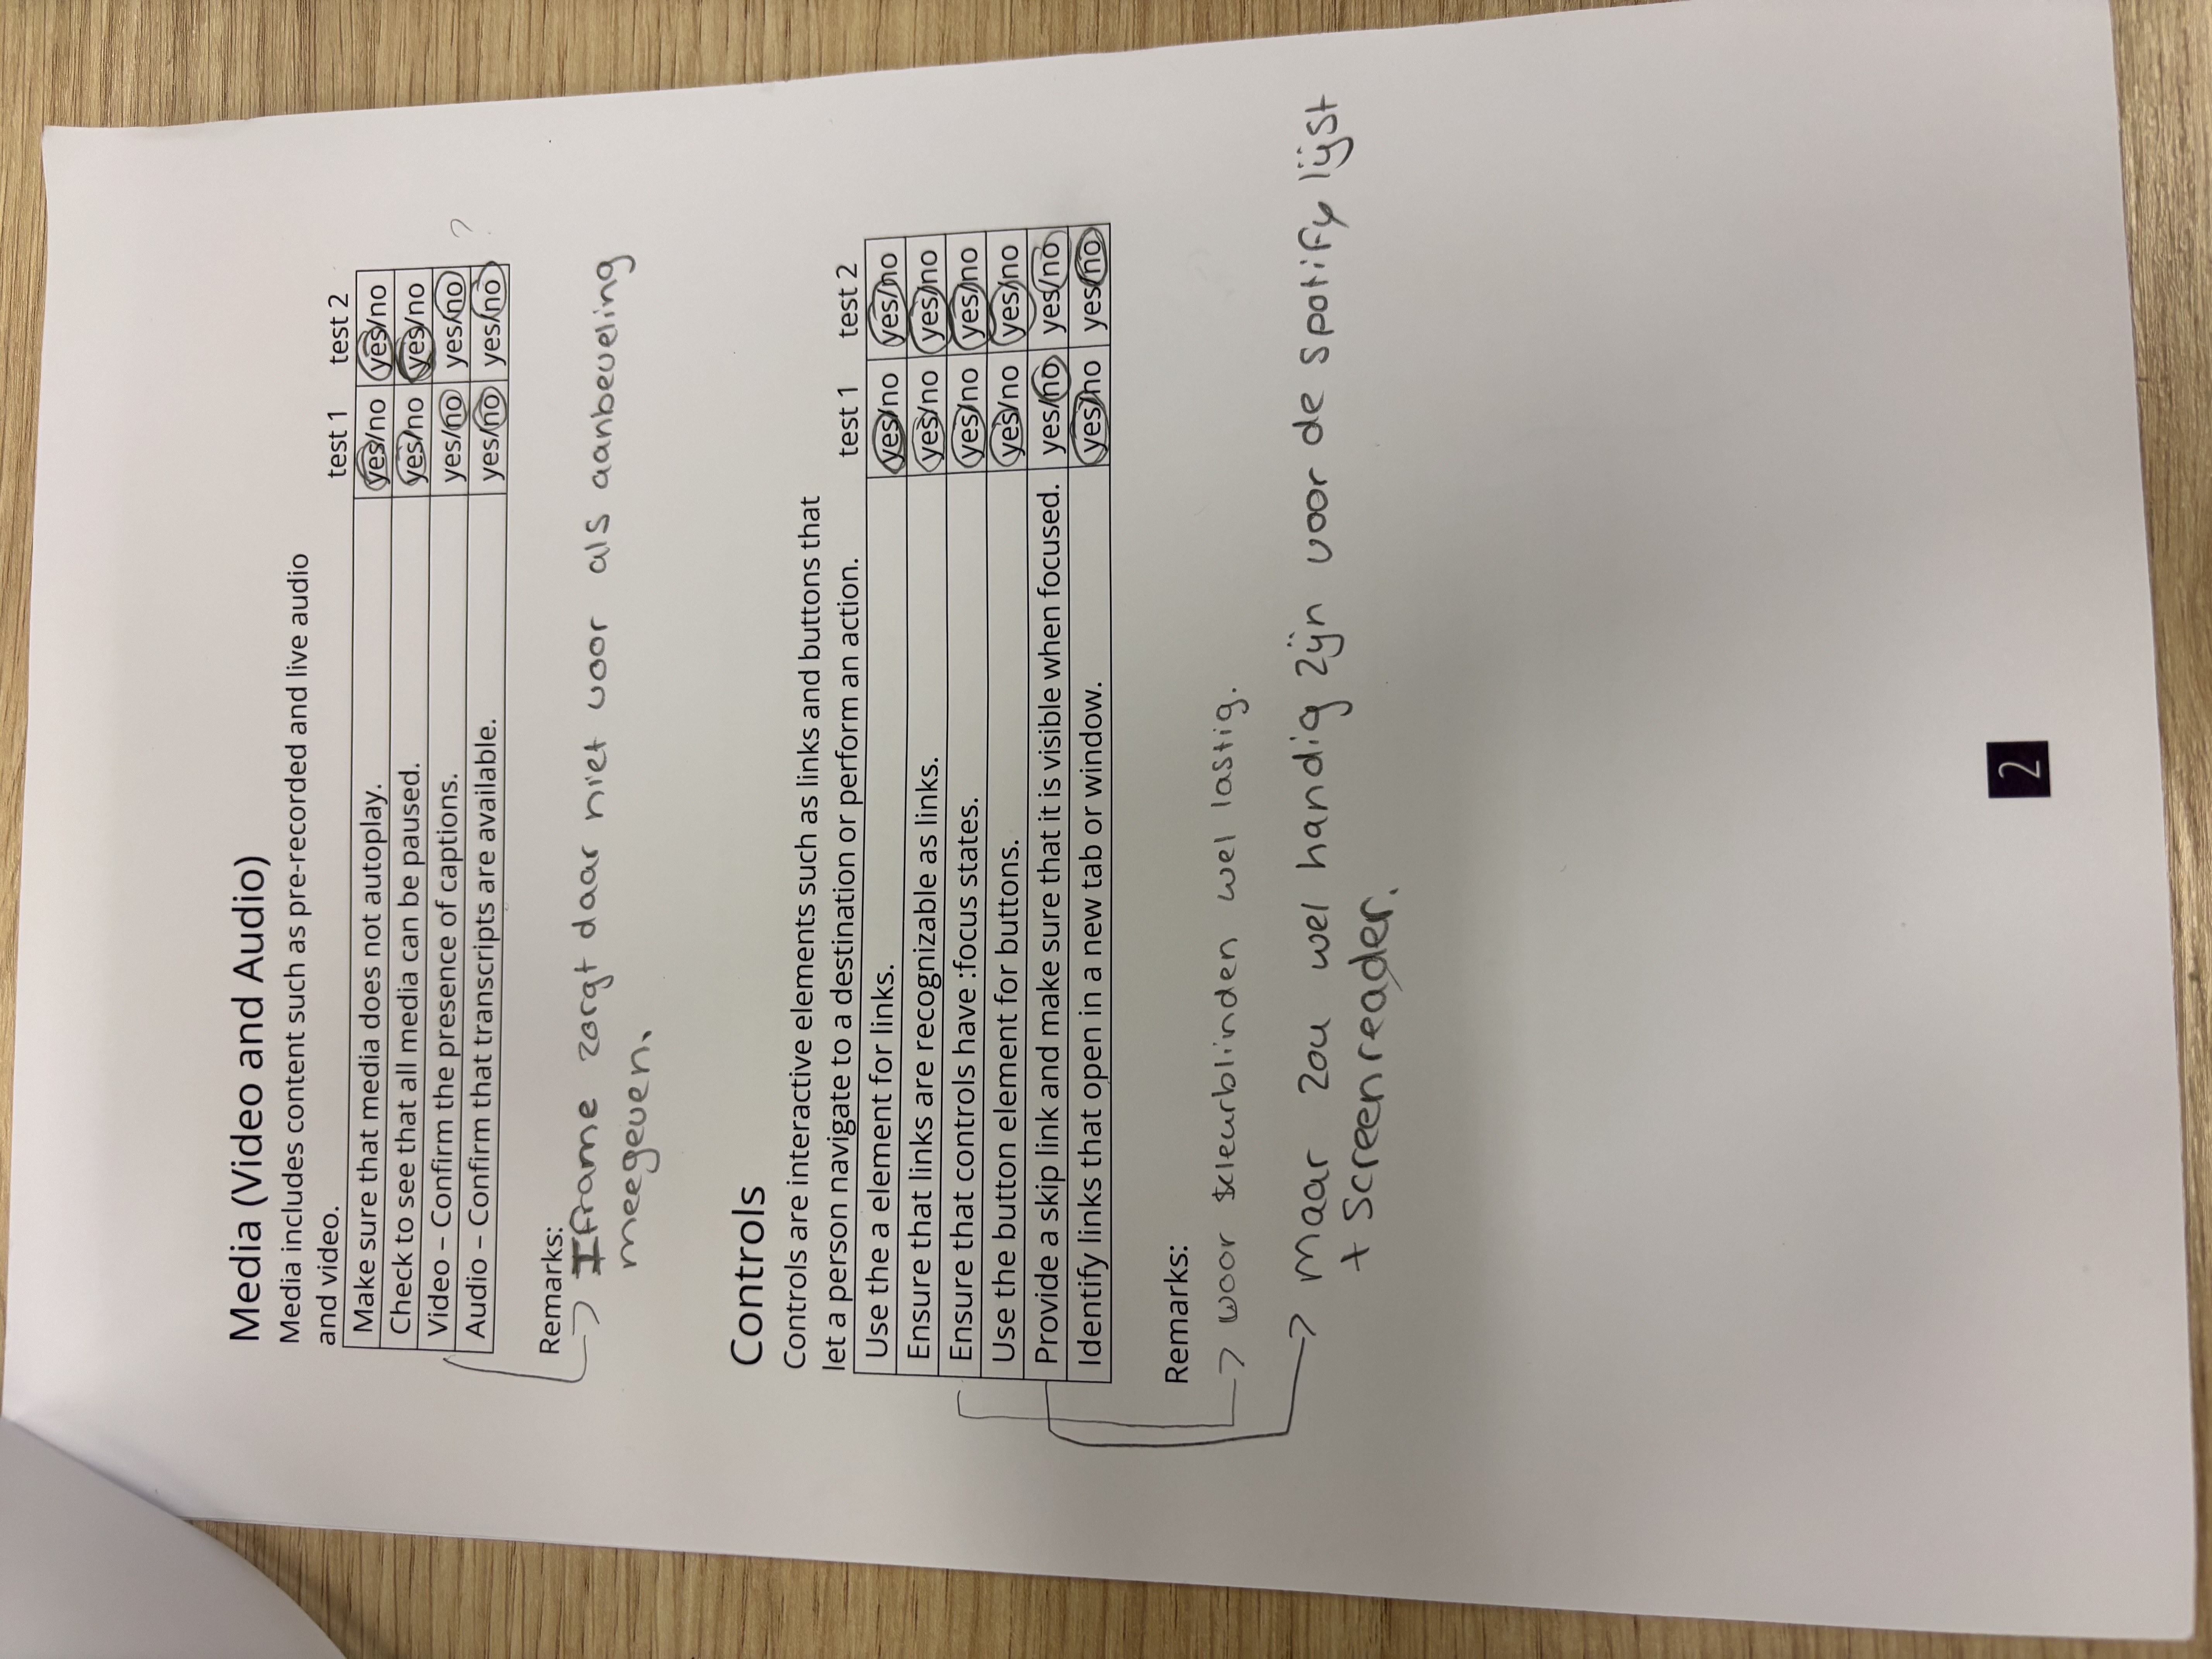 Media (Video and Audio)
Media includes content such as pre-recorded and live audio
and video. test 1 test 2
Make sure that media does not autoplay. yes/no yes/no
Check to see that all media can be paused. yes/no yes/no
Video – Confirm the presence of captions. yes/no yes/no ?
Audio – Confirm that transcripts are available. yes/no yes/no
Remarks:
→ Iframe zorgt daar niet voor als aanbeveling
meegeven.
Controls
Controls are interactive elements such as links and buttons that
let a person navigate to a destination or perform an action. test 1 test 2
Use the a element for links. yes/no yes/no
Ensure that links are recognizable as links. yes/no yes/no
Ensure that controls have :focus states. yes/no yes/no
Use the button element for buttons. yes/no yes/no
Provide a skip link and make sure that it is visible when focused. yes/no yes/no
Identify links that open in a new tab or window. yes/no yes/no
Remarks:
→ woor kleurblinden wel lastig.
→ maar zou wel handig zijn voor de spotify lijst
+ screenreader.
2